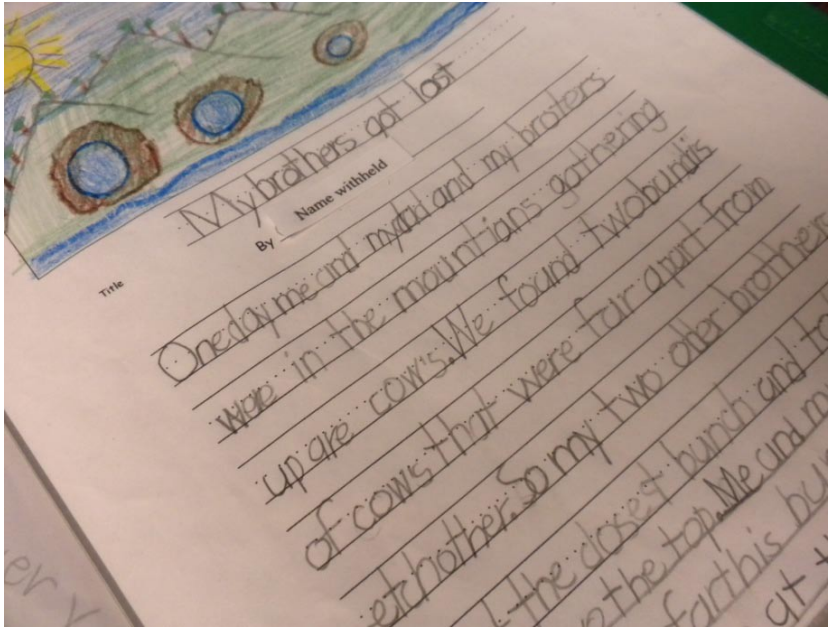 My brothers got lost
By Name withheld
Title
One day me and my dad and my broters
were in the mountians gathering
up are cow's. We found two bundis
of cows that were far apart from
etchother. So my two older brothers
the closest bunch and to
the top. Me and m
farthis bu
at t
er